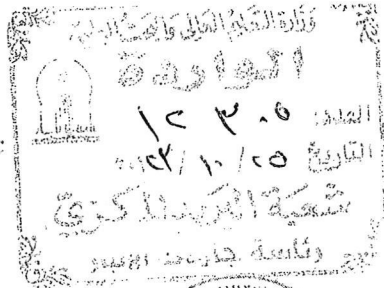 وزارة التعليم العالي والبحث العلمي
الواردة
العدد: ١٢٣٠٥
التاريخ ٢٥/١٠/
شعبة البريد المركزي
رئاسة جامعة الانبار